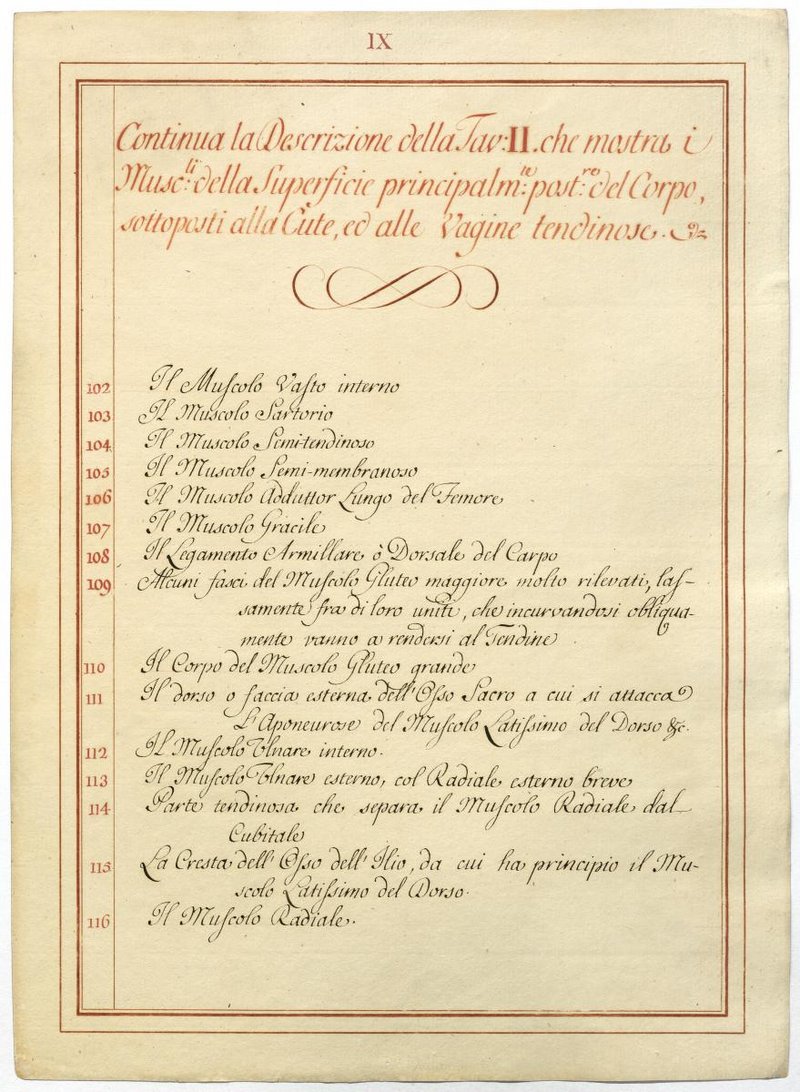 IX
Continua la Descrizione della Tav: II. che mostra i
Musc:li della Superficie principalm:te post:re del Corpo,
sottoposti alla Cute, ed alle Vagine tendinose. &c
102 Il Muſcolo Vaſto interno
103 Il Muscolo Sartorio
104 Il Muscolo Semi-tendinoso
105 Il Muscolo Semi-membranoso
106 Il Muscolo Adduttor Lungo del Femore
107 Il Muscolo Gracile
108 Il Legamento Armillare ò Dorsale del Carpo
109 Alcuni fasci del Muſcolo Gluteo maggiore molto rilevati, laſ-
samente fra di loro uniti, che incurvandosi obliqua-
mente vanno a rendersi al Tendine
110 Il Corpo del Muſcolo Gluteo grande
111 Il dorso o faccia esterna dell' Oſso Sacro a cui si attacca
L'Aponeurose del Muſcolo Latiſsimo del Dorso &c.
112 Il Muſcolo Ulnare interno.
113 Il Muſcolo Ulnare esterno, col Radiale esterno breve
114 Parte tendinosa che separa il Muſcolo Radiale dal
Cubitale
115 La Cresta dell' Oſso dell' Ilio, da cui ha principio il Mu-
scolo Latiſsimo del Dorso.
116 Il Muſcolo Radiale.